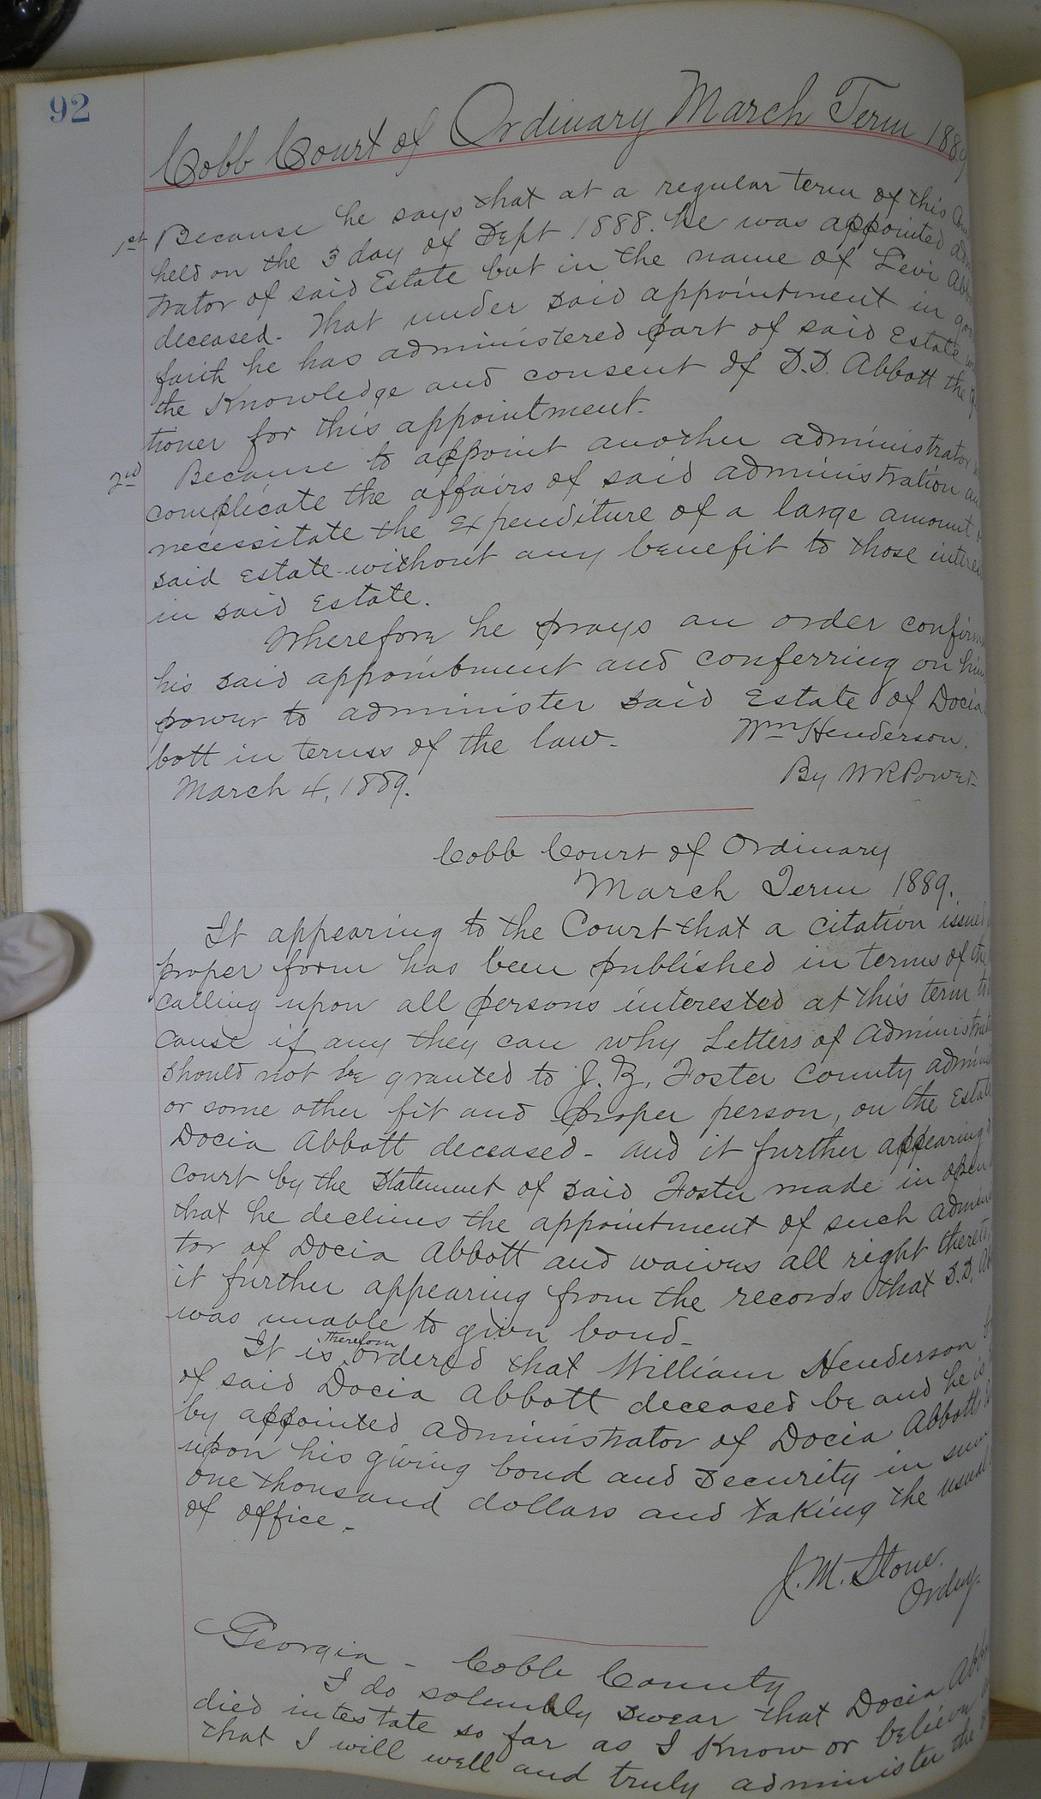 92
Cobb Court of Ordinary March Term 188
1st Because he says that at a regular term of this
held on the 3 day of Sept 1888. he was appointed
trator of said Estate but in the name of Levi
deceased. That under said appointment in
faith he has administered part of said Estate
the Knowledge and consent of D.D. Abbott the
tioner for this appointment.
2nd Because to appoint another administrator
complicate the affairs of said administration
necessitate the Expenditure of a large amount
said Estate without any benefit to those
in said Estate.
Wherefore he prays an order
his said appointment and conferring on him
power to administer said Estate of Docia
bott in terms of the law.
Wm Henderson.
March 4, 1889.
By W R Power
Cobb Court of Ordinary
March Term 1889.
It appearing to the Court that a citation
proper form has been published in terms of
calling upon all persons interested at this term
cause if any they can why Letters of
should not be granted to J. Z. Foster County
or some other fit and proper person, on the
Docia Abbott deceased - and it further appearing
court by the Statement of said Foster made in open
that he declines the appointment of such
tor of Docia Abbott and waives all right
it further appearing from the records that D.D.
was unable to given bond -
It is Therefore ordered that William Henderson
of said Docia Abbott deceased be and he is
by appointed administrator of Docia Abbott
upon his giving bond and security in
one thousand dollars and taking the usual
of office.
J. M. Stone.
Ordny.
Georgia - Cobb County
I do solembly swear that Docia
died intestate so far as I know or believe
that I will well and truly administer the